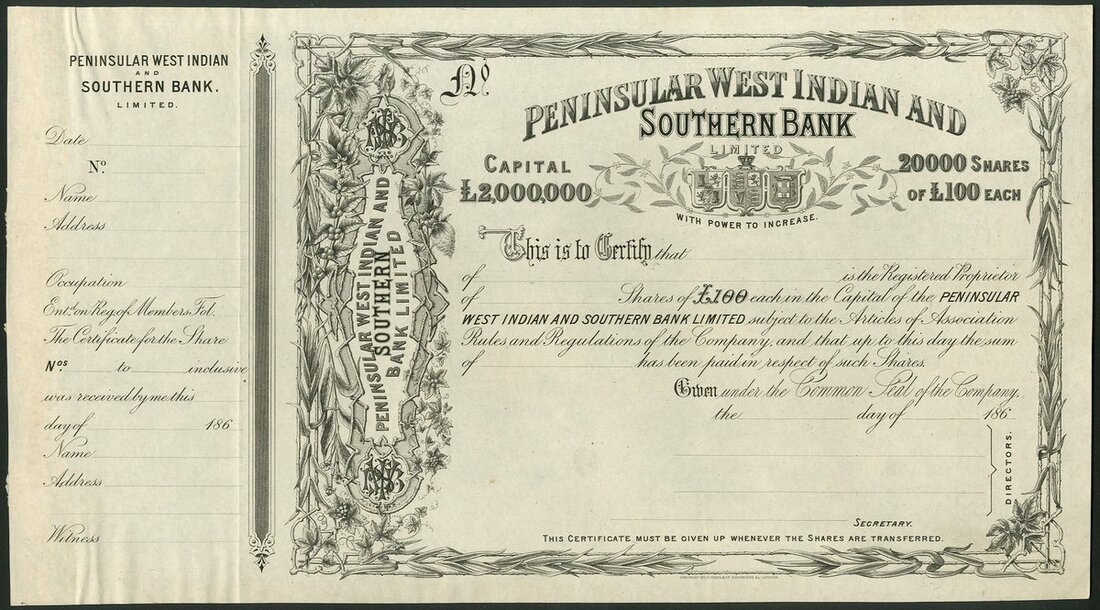 PENINSULAR WEST INDIAN
AND
SOUTHERN BANK.
LIMITED.
Date
No.
Name
Address
Occupation
Entd. on Reg. of Members Fol.
The Certificate for the Share
Nos to inclusive
was received by me this
day of 186
Name
Address
Witness
PENINSULAR WEST INDIAN AND
SOUTHERN
BANK LIMITED
No.
PENINSULAR WEST INDIAN AND
SOUTHERN BANK
LIMITED
CAPITAL
£2,000,000
20000 SHARES
OF £100 EACH
WITH POWER TO INCREASE.
This is to Certify that
of is the Registered Proprietor
of Shares of £100 each in the Capital of the PENINSULAR
WEST INDIAN AND SOUTHERN BANK LIMITED subject to the Articles of Association
Rules and Regulations of the Company, and that up to this day the sum
of has been paid in respect of such Shares.
Given under the Common Seal of the Company.
the day of 186
DIRECTORS.
SECRETARY.
THIS CERTIFICATE MUST BE GIVEN UP WHENEVER THE SHARES ARE TRANSFERRED.